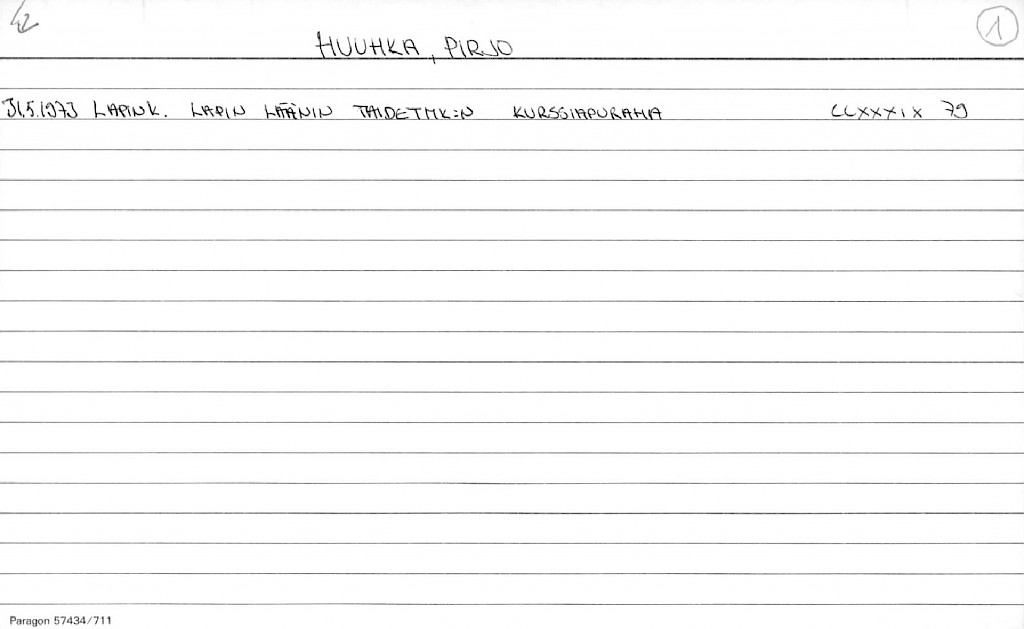 42
1
HUUHKA, PIRJO
31.5.1973 LAPINK. LAPIN LÄÄNIN TAIDETMK:N KURSSIAPURAHA CCXXXIX 79
Paragon 57434/711